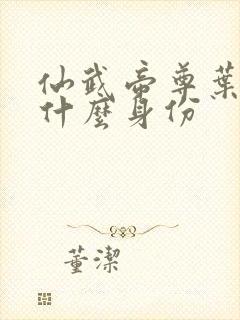 仙武帝尊葉
什麼身份
董潔